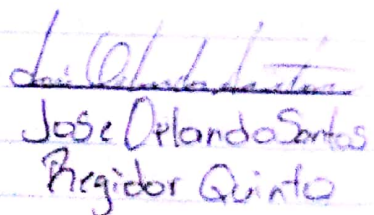 Jose Orlando Santos
Jose Orlando Santos
Regidor Quinto